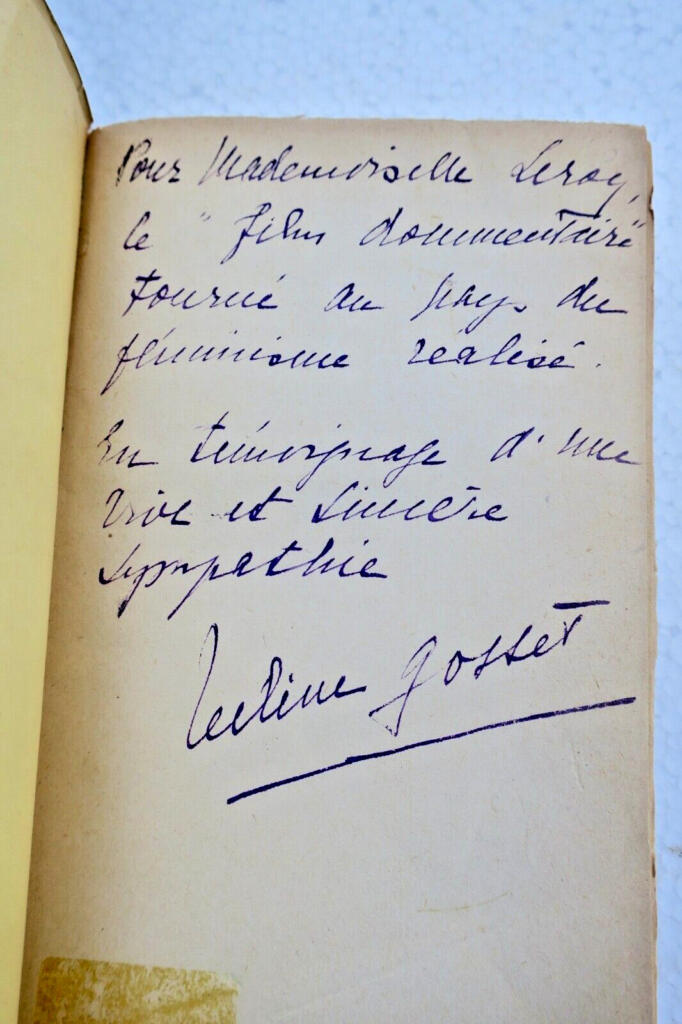 Pour Mademoiselle Leroy,
le "film documentaire"
tourné au pays du
féminisme réalisé.
En témoignage d'une
vive et sincère
sympathie
Gosset